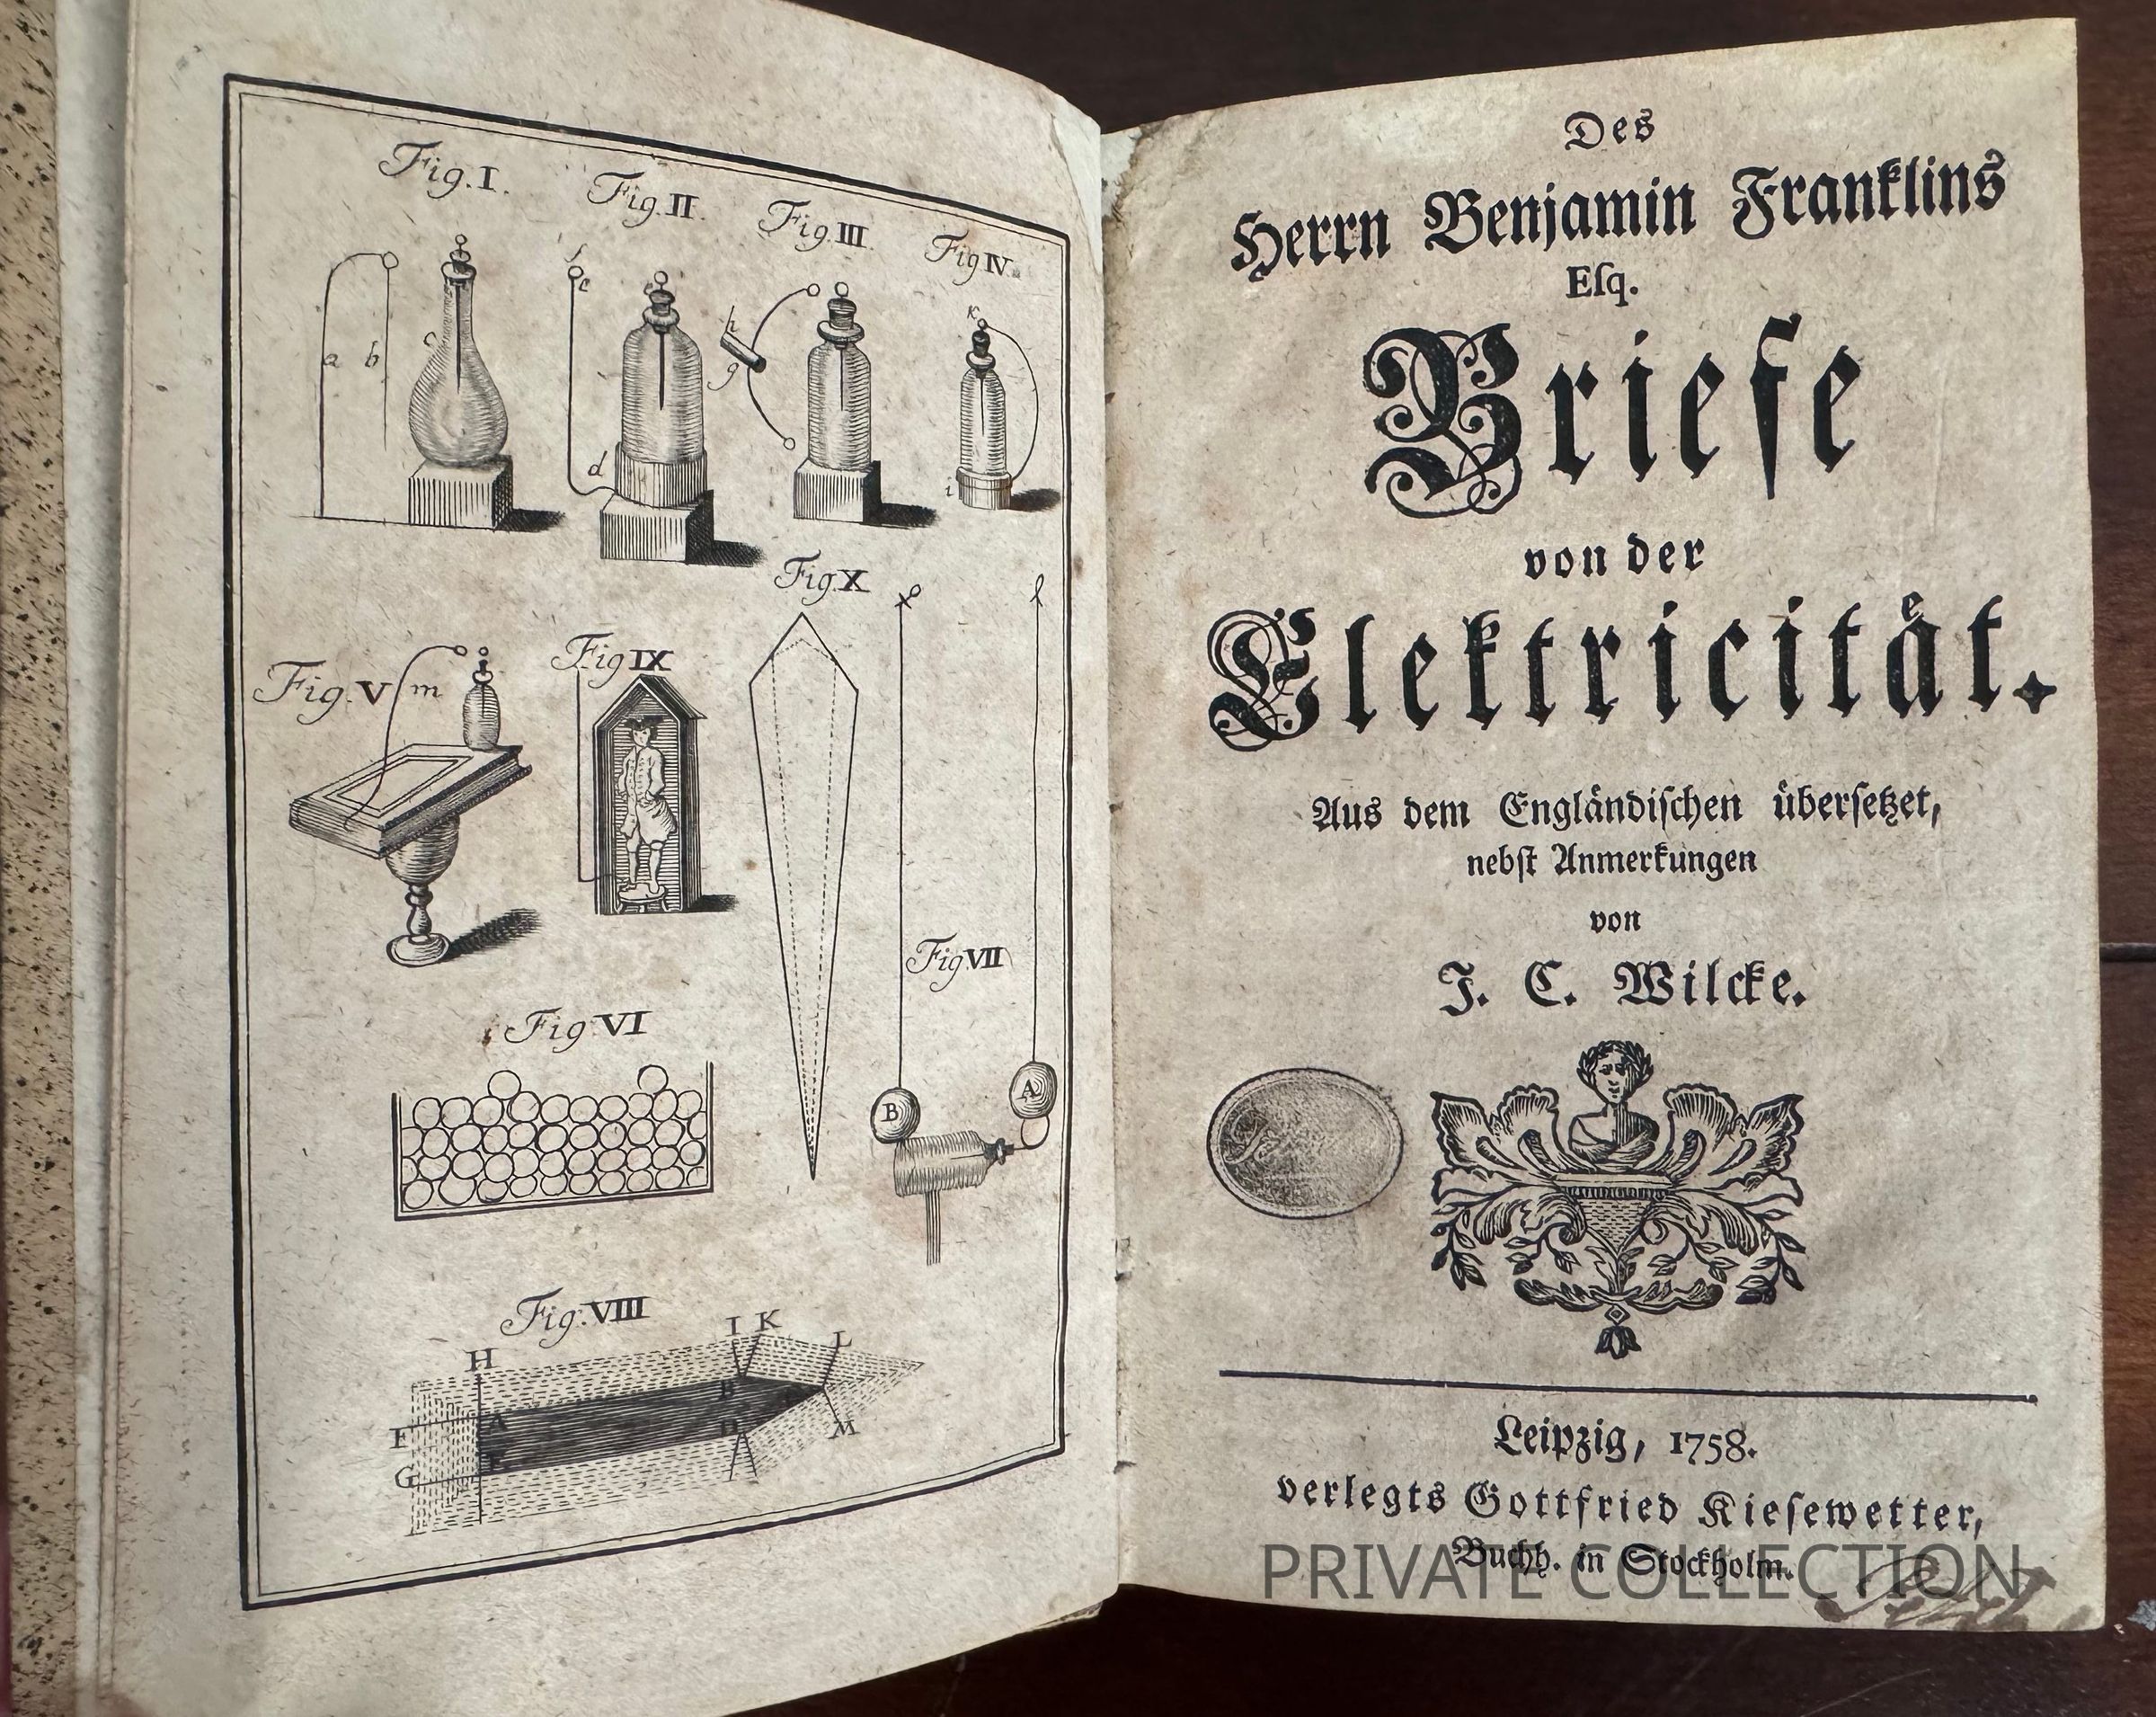 Fig. I.
Fig. II.
Fig. III.
Fig IV.
a b c
d e
g h
i K
Fig. V m
Fig IX
Fig. X
Fig VII
B A
Fig VI
Fig. VIII
H I K L
F A B
G E D M
Des
Herrn Benjamin Franklins
Eſq.
Briefe
von der
Elektricitaͤt.
Aus dem Englaͤndiſchen uͤberſetzet,
nebſt Anmerkungen
von
J. C. Wilcke.
Leipzig, 1758.
verlegts Gottfried Kieſewetter,
Buchh. in Stockholm.
PRIVATE COLLECTION